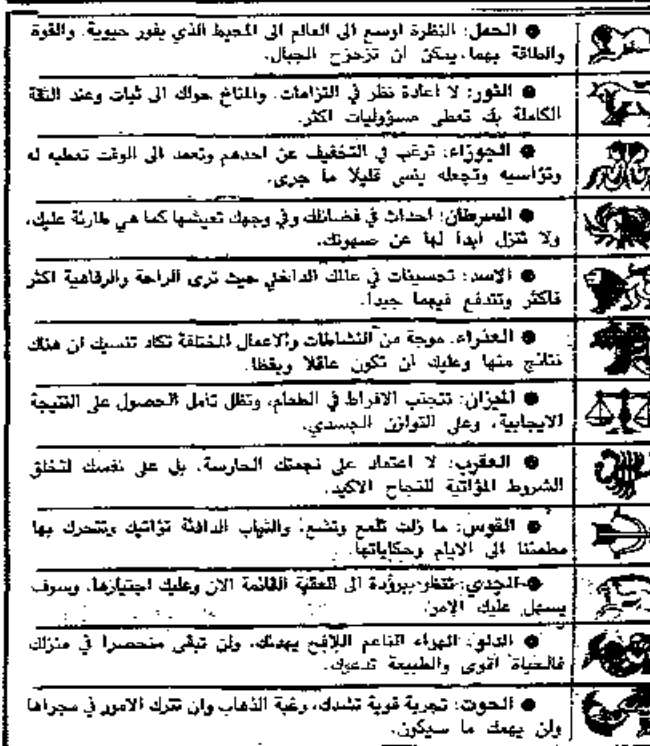 ● الحمل: النظرة اوسع الى العالم الى المحيط الذي يفور حيوية. والقوة
والطاقة بهما، يمكن ان تزحزح الجبال.
● الثور: لا اعادة نظر في التزامات. والمناخ حولك الى ثبات وعند الثقة
الكاملة بك تعطى مسؤوليات اكثر.
● الجوزاء: ترغب في التخفيف عن احدهم وتعمد الى الوقت تعطيه له
وتؤاسيه وتجعله ينسى قليلا ما جرى.
● السرطان: احداث في فضائك وفي وجهك تعيشها كما هي طارئة عليك،
ولا تنزل ابدا لها عن صهوتك.
● الاسد: تحسينات في عالمك الداخلي حيث ترى الراحة والرفاهية اكثر
فاكثر وتندفع فيهما جيدا.
● العذراء: موجة من النشاطات والاعمال المختلفة تكاد تنسيك ان هناك
نتائج منها وعليك ان تكون عاقلا ويقظا.
● الميزان: تتجنب الافراط في الطعام، وتظل تأمل الحصول على النتيجة
الايجابية، وعلى التوازن الجسدي.
● العقرب: لا اعتماد على نجمتك الحارسة، بل على نفسك لتخلق
الشروط المؤاتية للنجاح الاكيد.
● القوس: ما زلت تلمع وتشع، والثياب الدافئة تؤاتيك وتتحرك بها
مطمئنا الى الايام وحكاياتها.
● الجدي: تنظر ببرودة الى العقبة القائمة الان وعليك اجتيازها، وسوف
يسهل عليك الامر.
● الدلو: الهواء الناعم اللافح يهدئك، ولن تبقى منحصرا في منزلك
فالحياة اقوى والطبيعة تدعوك.
● الحوت: تجربة قوية تشدك، رغبة الذهاب وان تترك الامور في مجراها
ولن يهمك ما سيكون.